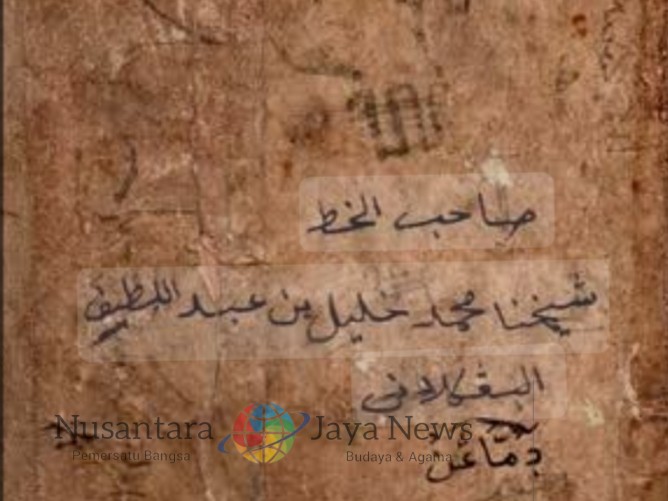 صاحب الخط
شيخنا محمد خليل بن عبد اللطيف
البڠكلاني
Nusantara Jaya News
Pemersatu Bangsa Budaya & Agama